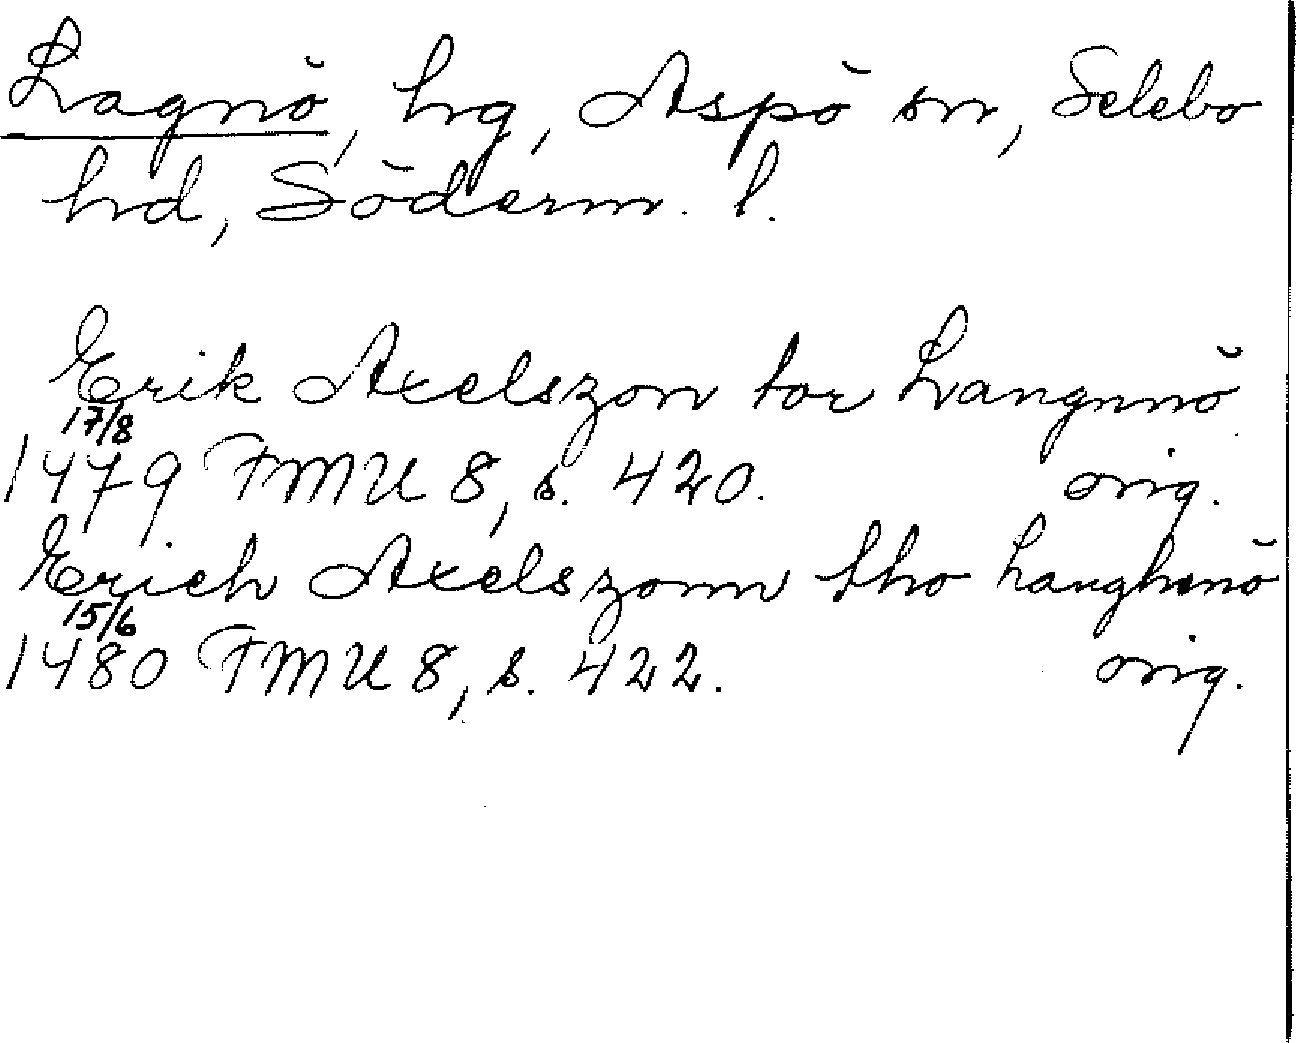 Lagnö, hg, Aspö sn, Selebo
hd, Söderm. l.
Erik Axelszon tor Langnnö
17/8
1479 FMU 8, s. 420. orig.
Erich Axelszonn tho Langhnö
15/6
1480 FMU 8, s. 422. orig.